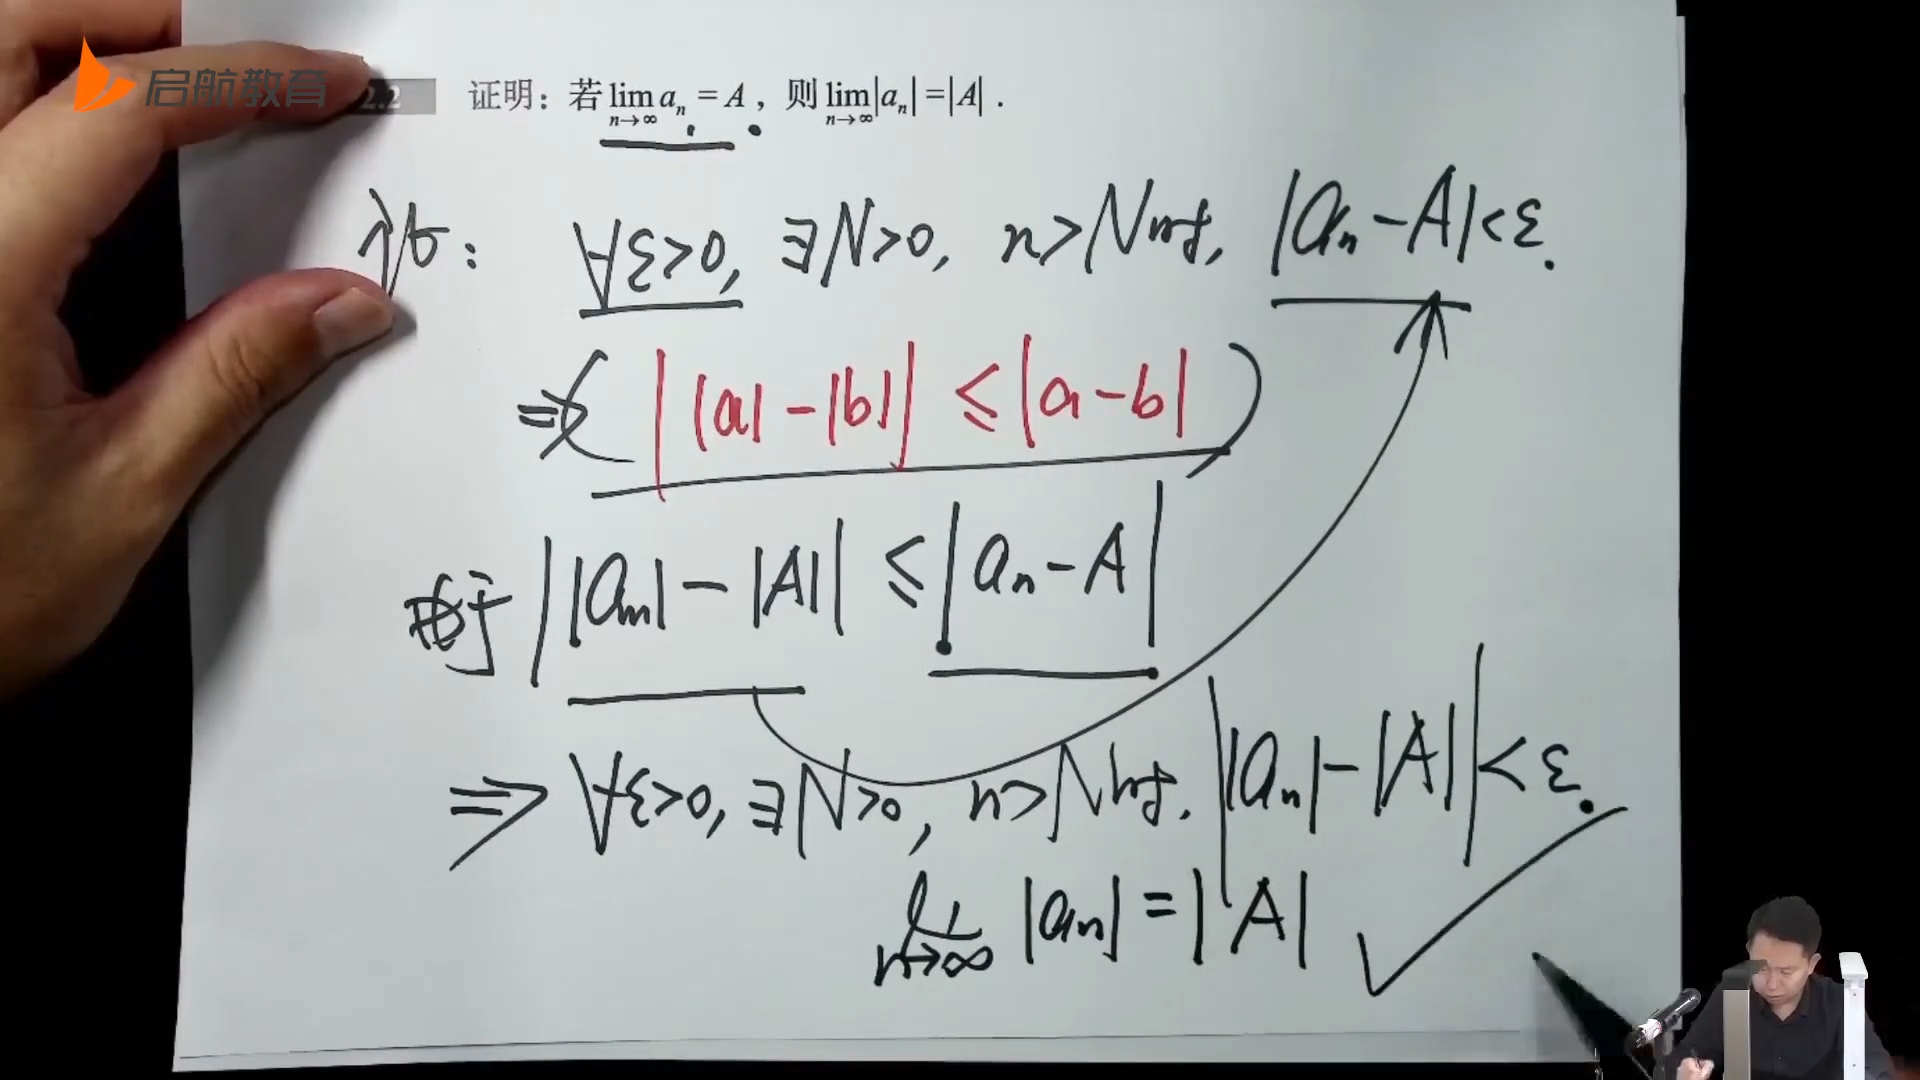 启航教育
2.2 证明：若 lim n→∞ aₙ = A，则 lim n→∞ |aₙ| = |A|.
证: ∀ε>0, ∃N>0, n>N时, |aₙ-A|<ε.
⇒( ||a|-|b|| ≤ |a-b| )
由于 ||aₙ|-|A|| ≤ |aₙ-A|
⇒ ∀ε>0, ∃N>0, n>N时, ||aₙ|-|A||<ε.
lim n→∞ |aₙ| = |A|